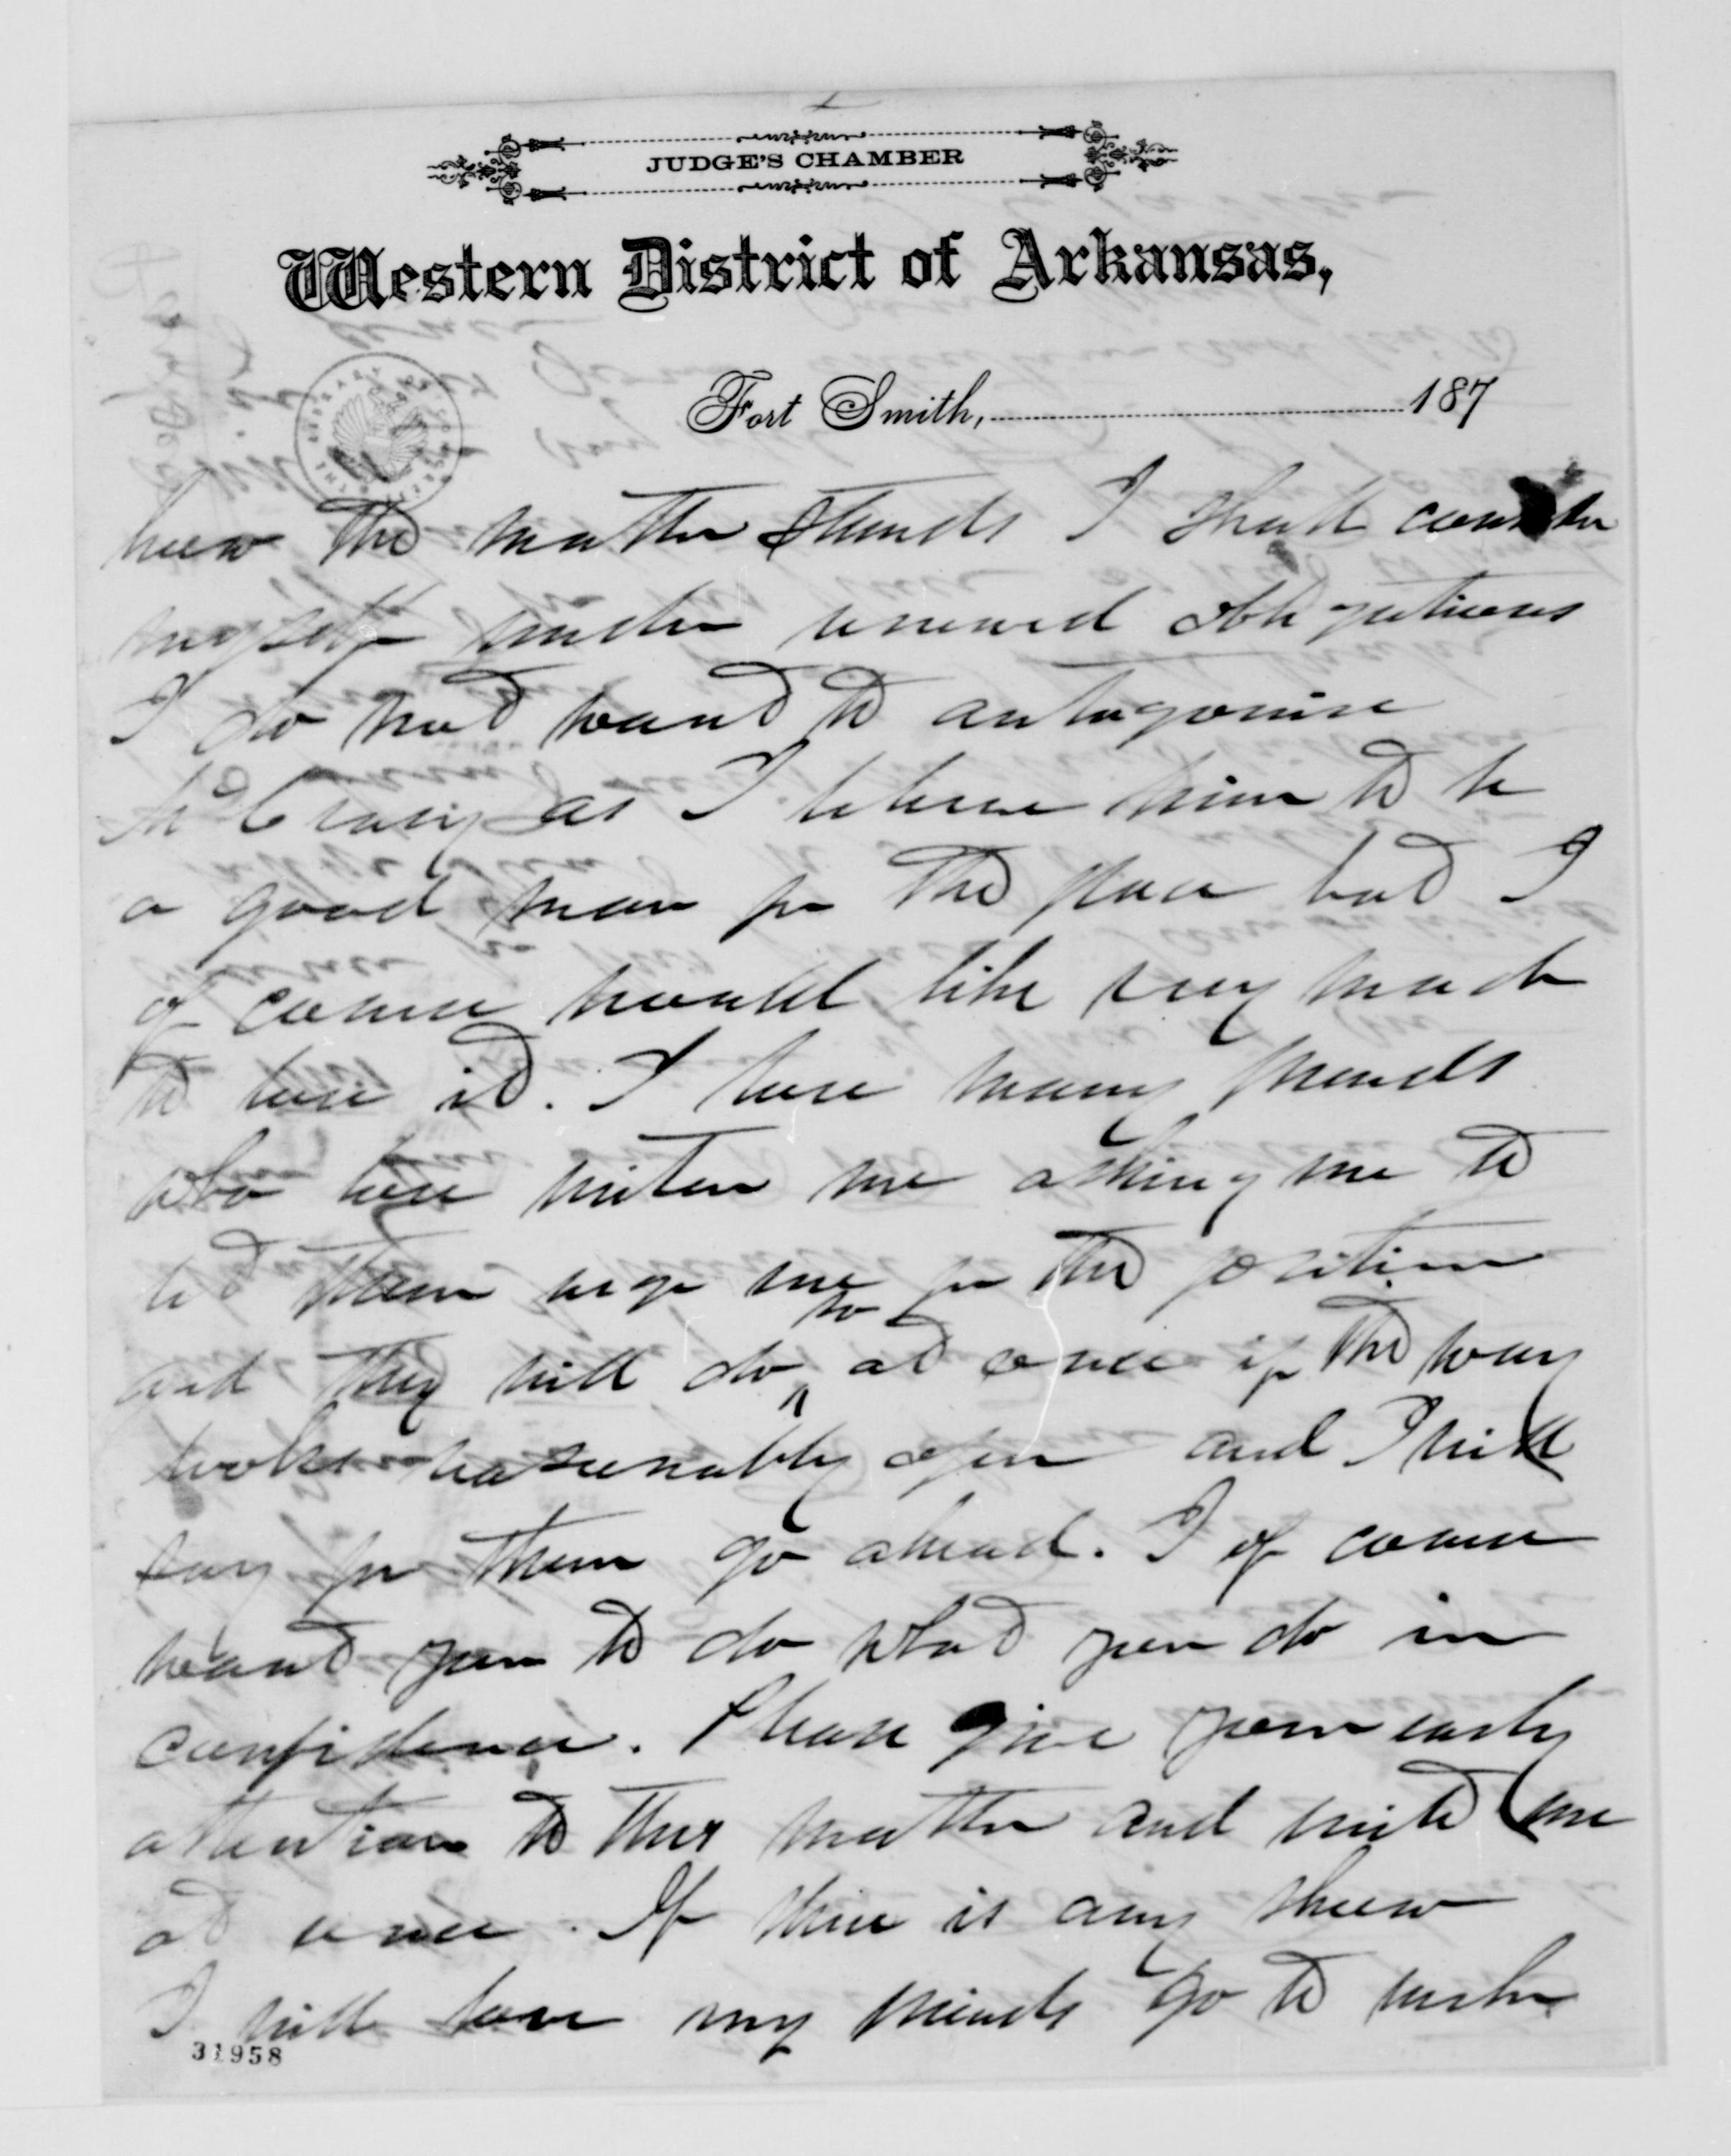 JUDGE'S CHAMBER
Western District of Arkansas,
Fort Smith, 187
how the matter stands I shall consider
myself under renewed obligations
I do not want to antagonise
McCrary as I believe him to be
a good man for the place but I
of course would like very much
to have it. I have many friends
who have writen me asking me to
let them urge me for the position
and they will do so at once if the way
looks reasonably open and I will
say for them go ahead. I of course
want you to do what you do in
confidence. Please give your early
attention to this matter and write me
at once. If there is any show
I will have my friends go to work
31958